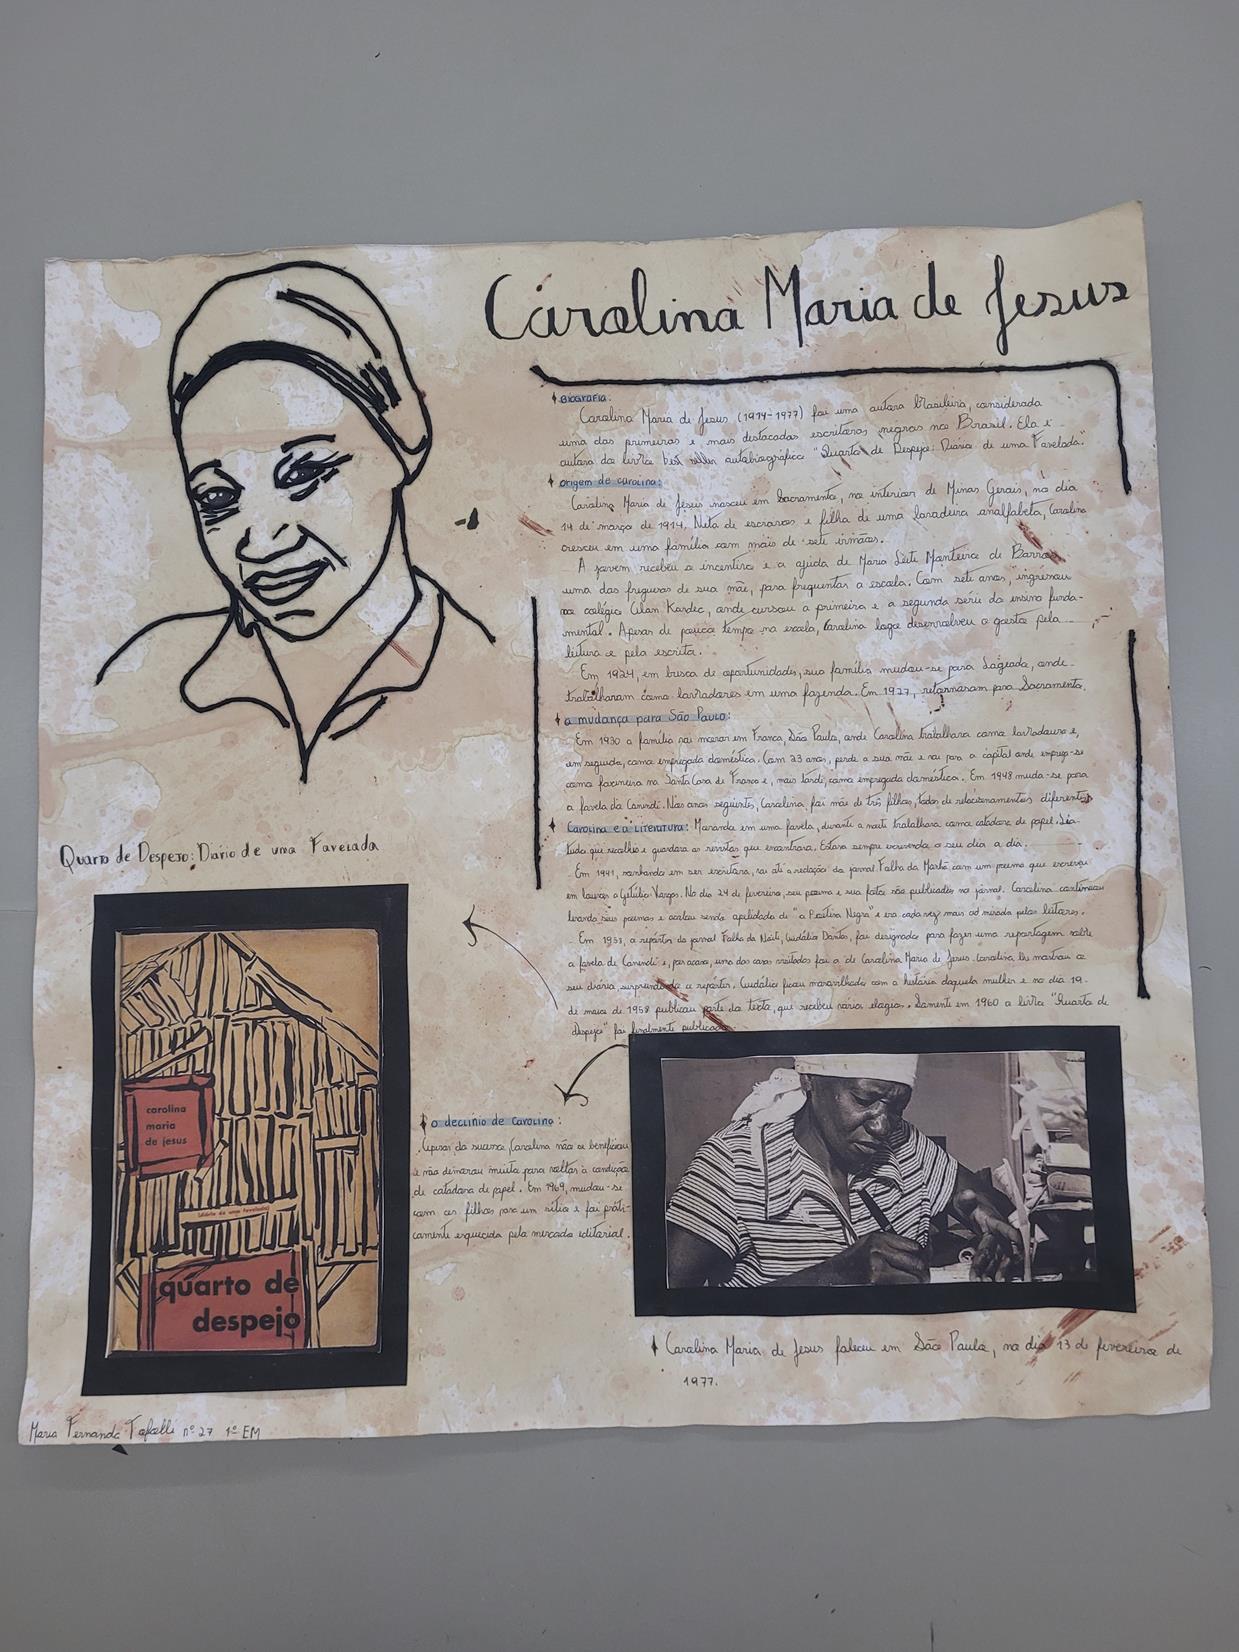 Carolina Maria de Jesus
Biografia:
Carolina Maria de Jesus (1914-1977) foi uma autora brasileira, considerada
uma das primeiras e mais destacadas escritoras negras no Brasil. Ela é
autora do livro best seller autobiográfico "Quarto de Despejo: Diário de uma Favelada."
origem de carolina:
Carolina Maria de Jesus nasceu em Sacramento, no interior de Minas Gerais, no dia
14 de março de 1914. Neta de escravos e filha de uma lavadeira analfabeta, Carolina
cresceu em uma família com mais de sete irmãos.
A jovem recebeu o incentivo e a ajuda de Maria Leite Monteiro de Barros
uma das freguesas de sua mãe, para frequentar a escola. Com sete anos, ingressou
no colégio Allan Kardec, onde cursou a primeira e a segunda série do ensino funda-
mental. Apesar de pouco tempo na escola, Carolina logo desenvolveu o gosto pela
leitura e pela escrita.
Em 1924, em busca de oportunidades, sua família mudou-se para Lageado, onde
trabalharam como lavradores em uma fazenda. Em 1927, retornaram para Sacramento.
a mudança para São Paulo:
Em 1930 a família vai morar em Franca, São Paulo, onde Carolina trabalhava como lavradora e,
em seguida, como empregada doméstica. Com 23 anos, perde a sua mãe e vai para a capital onde emprega-se
como faxineira na Santa Casa de Franca e, mais tarde, como empregada doméstica. Em 1948 muda-se para
a favela do Canindé. Nos anos seguintes, Carolina foi mãe de três filhos, todos de relacionamentos diferentes
Carolina e a Literatura: Morando em uma favela, durante a noite trabalhava como catadora de papel. Lia
tudo que recolhia e guardava as revistas que encontrava. Estava sempre escrevendo o seu dia a dia.
Em 1941, sonhando em ser escritora, vai até a redação do jornal Folha da Manhã com um poema que escreveu
em louvor a Getúlio Vargas. No dia 24 de fevereiro, seu poema e sua foto são publicados no jornal. Carolina continuou
levando seus poemas e acabou sendo apelidada de "a Poetisa Negra" e era cada vez mais admirada pelos leitores.
Em 1958, o repórter do jornal Folha da Noite, Audálio Dantas, foi designado para fazer uma reportagem sobre
a favela do Canindé e, por acaso, uma das casas visitadas foi a de Carolina Maria de Jesus. Carolina lhe mostrou o
seu diário, surpreendendo o repórter. Audálio ficou maravilhado com a história daquela mulher e no dia 19
de maio de 1958 publicou parte do texto, que recebeu vários elogios. Somente em 1960 o livro "Quarto de
Despejo" foi finalmente publicado.
Quarto de Despejo: Diário de uma Favelada
carolina
maria
de jesus
(diário de uma favelada)
quarto de
despejo
o declínio de Carolina:
Apesar do sucesso, Carolina não se beneficiou
e não demorou muito para voltar à condição
de catadora de papel. Em 1969, mudou-se
com os filhos para um sítio e foi prati-
camente esquecida pelo mercado editorial.
Carolina Maria de Jesus faleceu em São Paulo, no dia 13 de fevereiro de
1977.
Maria Fernanda nº 27 1º EM